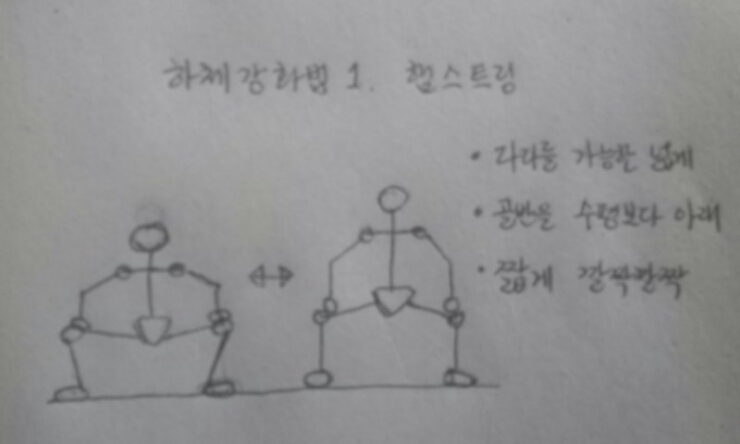 하체강화법 1. 햄스트링
• 다리를 가능한 넓게
• 골반을 수평보다 아래
• 짧게 깔짝깔짝